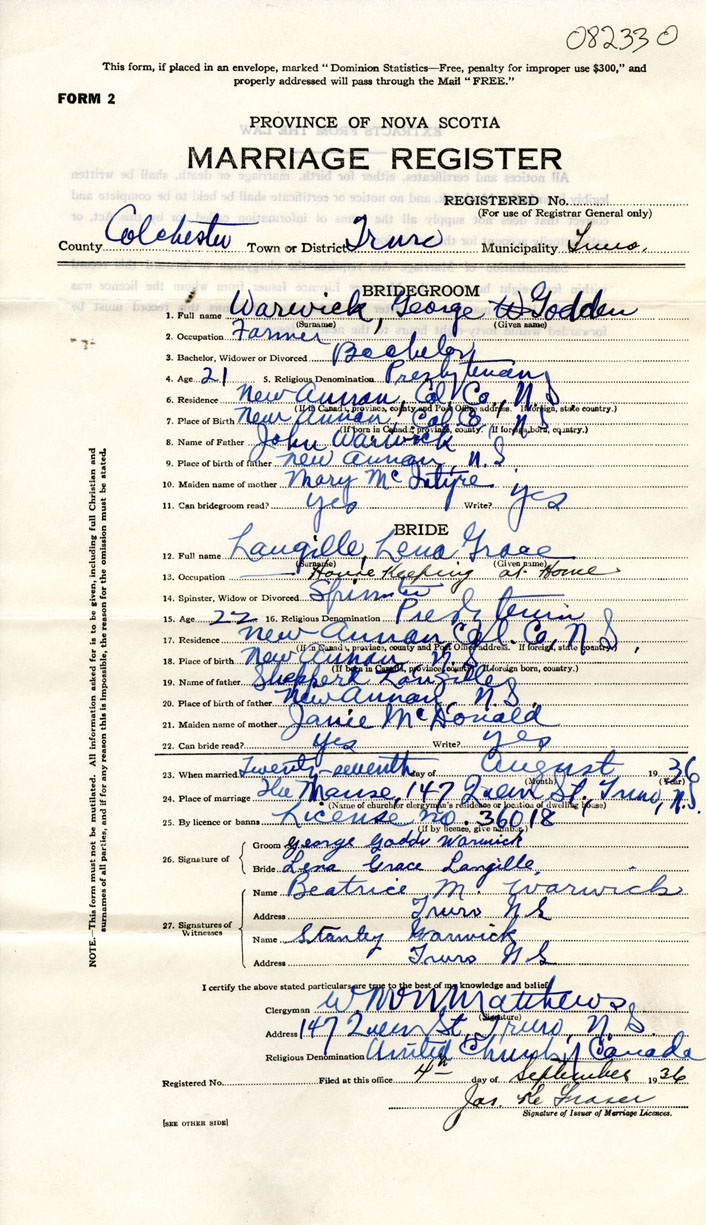 082330
This form, if placed in an envelope, marked "Dominion Statistics—Free, penalty for improper use $300," and
properly addressed will pass through the Mail "FREE."
FORM 2
PROVINCE OF NOVA SCOTIA
MARRIAGE REGISTER
REGISTERED No.
(For use of Registrar General only)
County Colchester Town or District Truro Municipality Truro.
BRIDEGROOM
1. Full name Warwick, George W Godden
(Surname) (Given name)
2. Occupation Farmer
3. Bachelor, Widower or Divorced Bachelor
4. Age 21 5. Religious Denomination Presbyterian
6. Residence New Annan, Col. Co., N S
(If in Canada, province, county and Post Office address. If foreign, state country.)
7. Place of Birth New Annan, Col. Co., N S
(If born in Canada, province, county. If foreign born, country.)
8. Name of Father John Warwick
9. Place of birth of father New Annan N. S
10. Maiden name of mother Mary McIntyre
11. Can bridegroom read? yes Write? yes
BRIDE
12. Full name Langille, Lena Grace
(Surname) (Given name)
13. Occupation House Keeping at Home
14. Spinster, Widow or Divorced Spinster
15. Age 22 16. Religious Denomination
17. Residence New Annan Col. Co, N S.
(If in Canada, province, county and Post Office address. If foreign state country.)
18. Place of birth New Annan N. S
(If born in Canada, province, county. If foreign born, country.)
19. Name of father Langille
20. Place of birth of father New Annan N. S.
21. Maiden name of mother Janie McDonald
22. Can bride read? yes Write? yes
23. When married Twenty-seventh day of August 1936
(Month) (Year)
24. Place of marriage The Manse, 147 Queen St., Truro, N.S.
(Name of church or clergyman's residence or location of dwelling house)
25. By licence or banns License no. 36018
(If by licence, give number)
26. Signature of
Groom George Warwick
Bride Lena Grace Langille,
27. Signatures of Witnesses
Name Beatrice M. Warwick
Address Truro N S
Name Stanley Warwick
Address Truro N S
I certify the above stated particulars are true to the best of my knowledge and belief.
Clergyman Matthews
(Signature)
Address 147 Queen St, Truro, N. S.
Religious Denomination United Church of Canada
Registered No. Filed at this office 4th day of September 1936
Jas.
Signature of Issuer of Marriage Licences.
[SEE OTHER SIDE]
NOTE.—This form must not be mutilated. All information asked for is to be given, including full Christian and
surnames of all parties, and if for any reason this is impossible, the reason for the omission must be stated.